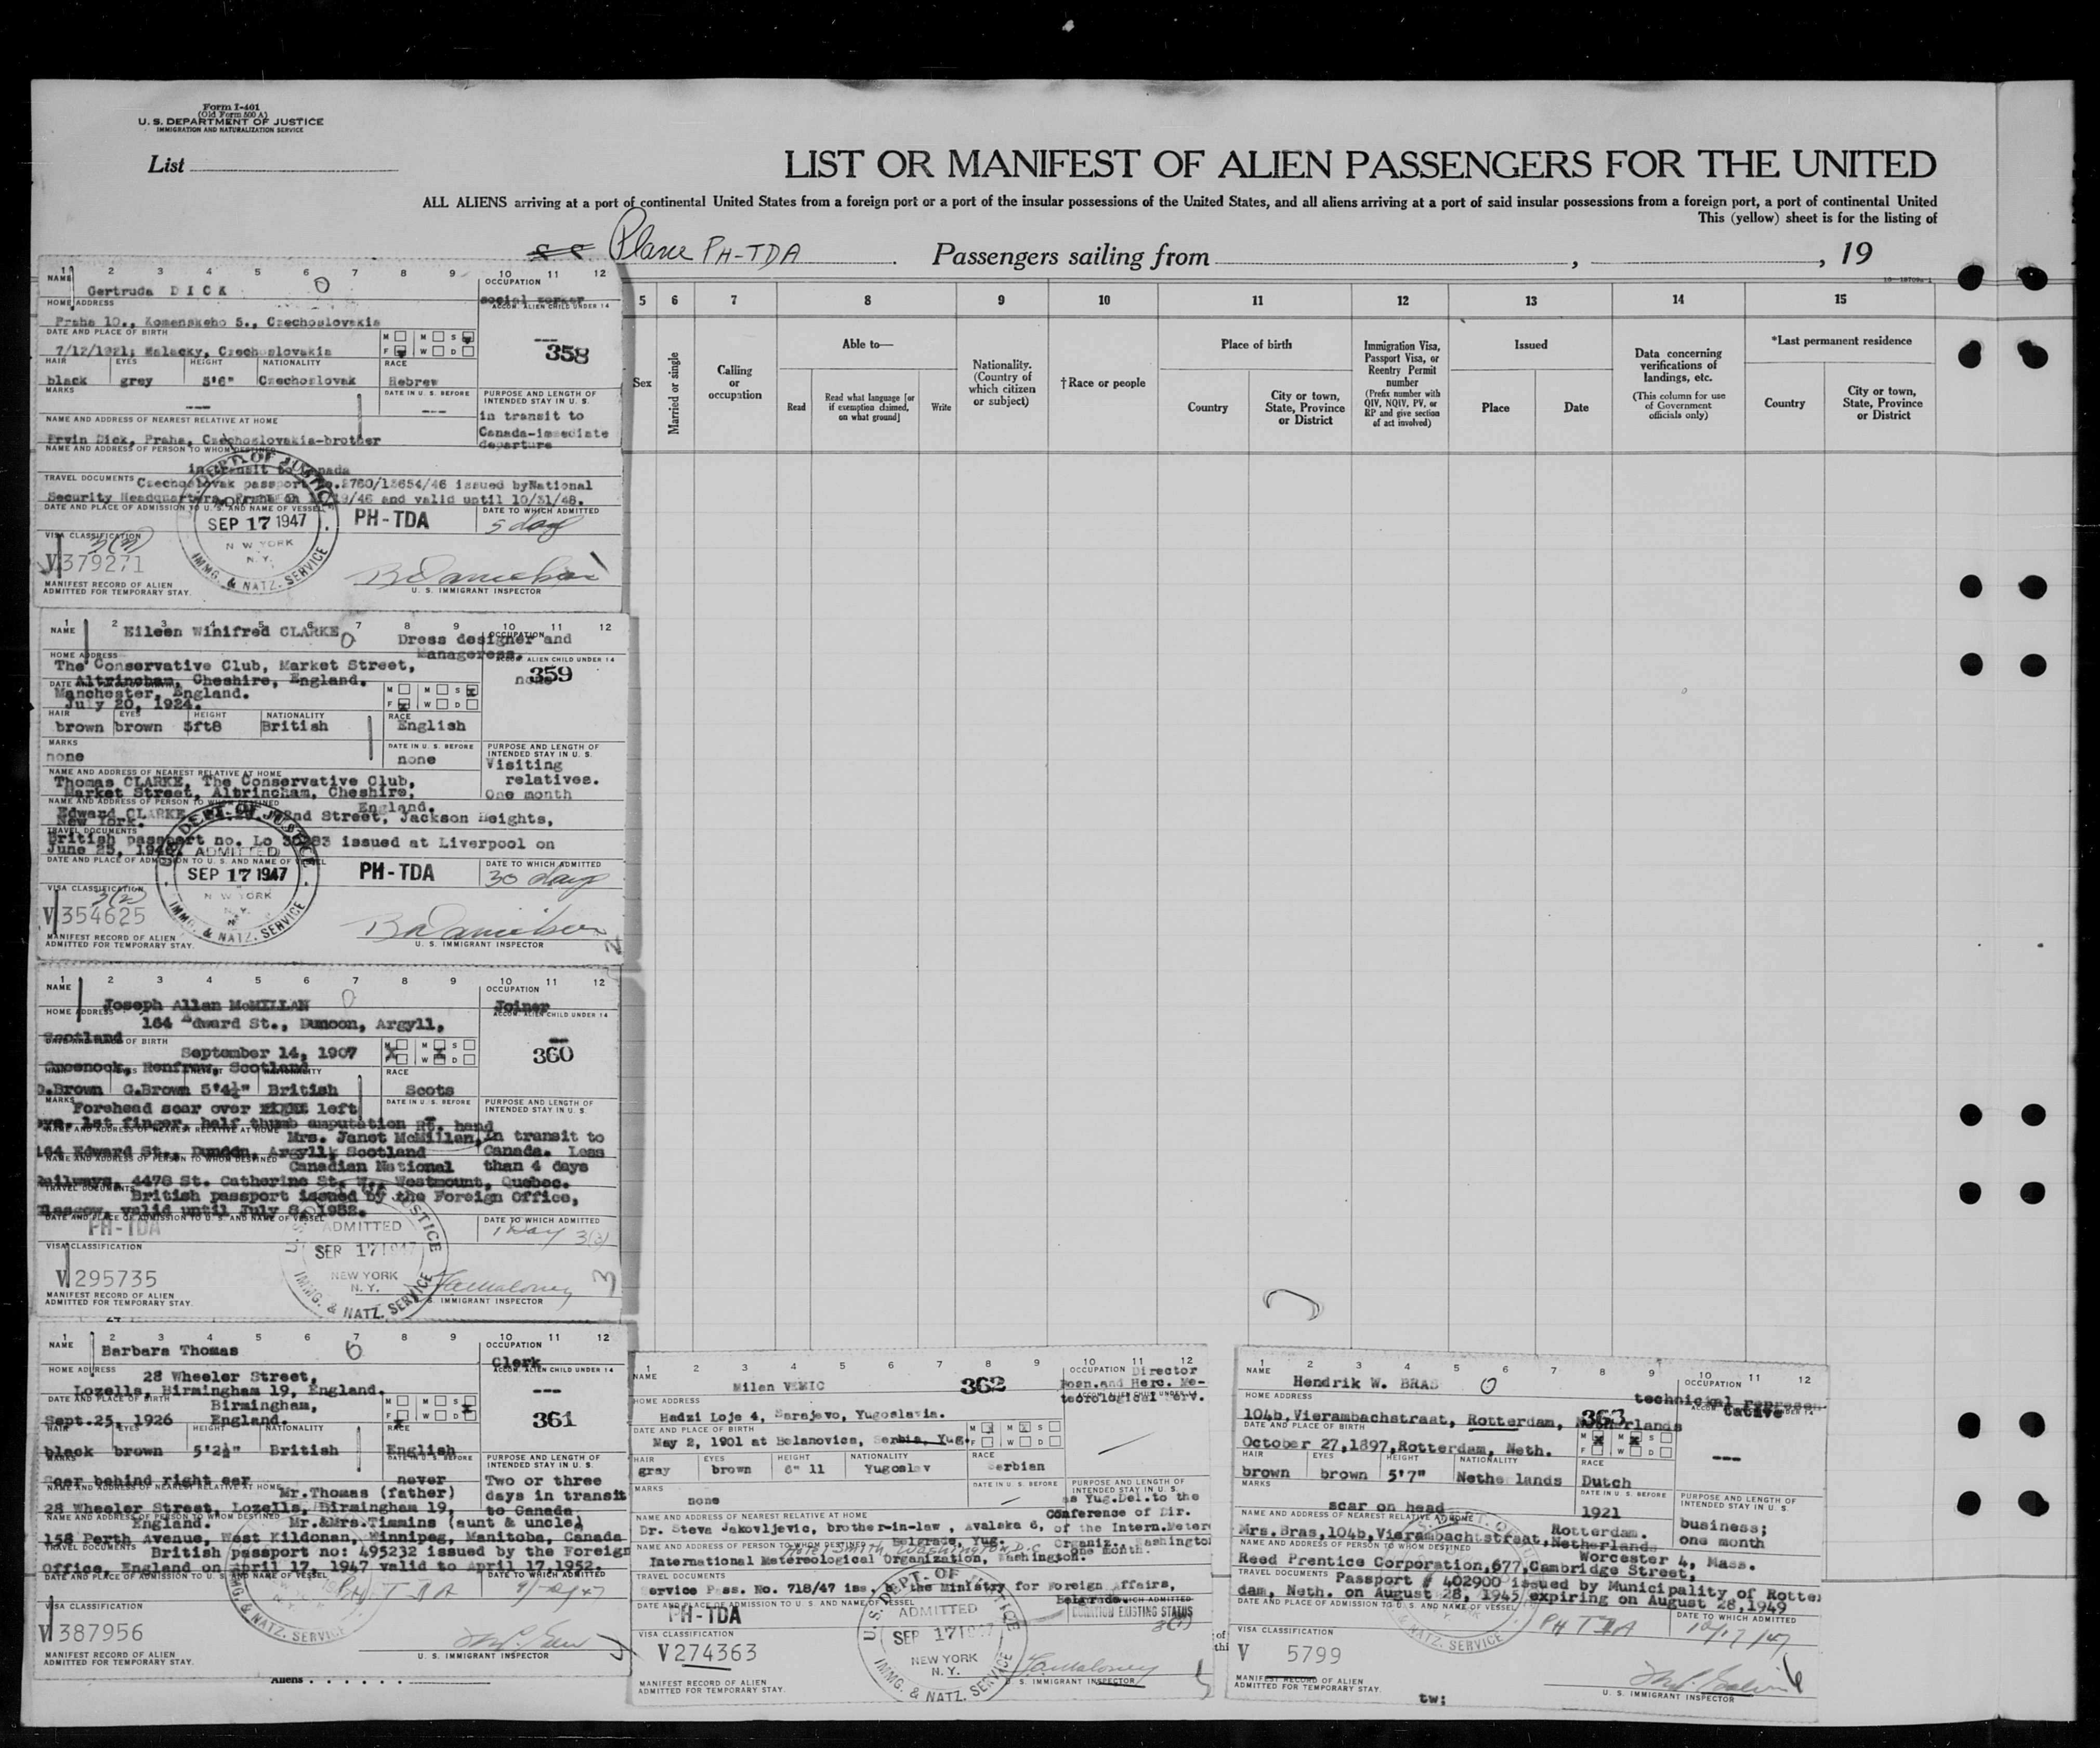 Form I-401
(Old Form 500 A)
U. S. DEPARTMENT OF JUSTICE
IMMIGRATION AND NATURALIZATION SERVICE
List
LIST OR MANIFEST OF ALIEN PASSENGERS FOR THE UNITED
ALL ALIENS arriving at a port of continental United States from a foreign port or a port of the insular possessions of the United States, and all aliens arriving at a port of said insular possessions from a foreign port, a port of continental United
This (yellow) sheet is for the listing of
Plane PH-TDA Passengers sailing from , , 19
5 6 7 8 9 10 11 12 13 14 15
Sex
Married or single
Calling or occupation
Able to—
Read
Read what language [or if exemption claimed, on what ground]
Write
Nationality. (Country of which citizen or subject)
†Race or people
Place of birth
Country
City or town, State, Province or District
Immigration Visa, Passport Visa, or Reentry Permit number
(Prefix number with QIV, NQIV, PV, or RP and give section of act involved)
Issued
Place
Date
Data concerning verifications of landings, etc.
(This column for use of Government officials only)
*Last permanent residence
Country
City or town, State, Province or District
1 2 3 4 5 6 7 8 9 10 11 12
NAME
Gertruda DICK
OCCUPATION
social worker
ACCOM. ALIEN CHILD UNDER 14
---
HOME ADDRESS
Praha 10., Komenskeho 5., Czechoslovakia
DATE AND PLACE OF BIRTH
7/12/1921; Malacky, Czechoslovakia
M M S
F W D
358
HAIR EYES HEIGHT NATIONALITY RACE
black grey 5'6" Czechoslovak Hebrew
MARKS
---
DATE IN U. S. BEFORE
---
PURPOSE AND LENGTH OF INTENDED STAY IN U. S.
in transit to
Canada-immediate
departure
NAME AND ADDRESS OF NEAREST RELATIVE AT HOME
Ervin Dick, Praha, Czechoslovakia-brother
NAME AND ADDRESS OF PERSON TO WHOM DESTINED
in transit to Canada
TRAVEL DOCUMENTS Czechoslovak passport No. 2760/13654/46 issued byNational
Security Headquarters, Praha on /46 and valid until 10/31/48.
DATE AND PLACE OF ADMISSION TO U. S. AND NAME OF VESSEL
DEPT. OF JUSTICE
SEP 17 1947
NEW YORK
N. Y.
IMMG. & NATZ. SERVICE
PH-TDA
DATE TO WHICH ADMITTED
5 days
VISA CLASSIFICATION
3(3)
V 379271
MANIFEST RECORD OF ALIEN
ADMITTED FOR TEMPORARY STAY.
U. S. IMMIGRANT INSPECTOR
1 2 3 4 5 6 7 8 9 10 11 12
NAME
Eileen Winifred CLARKE
OCCUPATION
Dress designer and
Manageress.
ACCOM. ALIEN CHILD UNDER 14
none
359
HOME ADDRESS
The Conservative Club, Market Street,
Altrincham, Cheshire, England.
Manchester, England.
July 20, 1924.
M M S
F W D
HAIR EYES HEIGHT NATIONALITY RACE
brown brown 5ft8 British English
MARKS
none
DATE IN U. S. BEFORE
none
PURPOSE AND LENGTH OF INTENDED STAY IN U. S.
Visiting
relatives.
One month
NAME AND ADDRESS OF NEAREST RELATIVE AT HOME
Thomas CLARKE, The Conservative Club,
Market Street, Altrincham, Cheshire,
England.
NAME AND ADDRESS OF PERSON TO WHOM DESTINED
Edward CLARKE 2nd Street, Jackson Heights,
New York.
TRAVEL DOCUMENTS
British passport no. Lo 30283 issued at Liverpool on
June 25, 1946.
DATE AND PLACE OF ADMISSION TO U. S. AND NAME OF VESSEL
ADMITTED
SEP 17 1947
NEW YORK
N. Y.
IMMG. & NATZ. SERVICE
PH-TDA
DATE TO WHICH ADMITTED
30 days
VISA CLASSIFICATION
3(2)
V 354625
MANIFEST RECORD OF ALIEN
ADMITTED FOR TEMPORARY STAY.
U. S. IMMIGRANT INSPECTOR
2
1 2 3 4 5 6 7 8 9 10 11 12
NAME
Joseph Allan McMILLAN
OCCUPATION
Joiner
ACCOM. ALIEN CHILD UNDER 14
HOME ADDRESS
164 Edward St., Dunoon, Argyll,
Scotland
DATE AND PLACE OF BIRTH
September 14, 1907
Greenock, Renfrew, Scotland
M M S
F W D
360
RACE
D.Brown G.Brown 5'4½" British Scots
MARKS
Forehead scar over left
eye. 1st finger, half thumb amputation Rt. hand
DATE IN U. S. BEFORE
PURPOSE AND LENGTH OF INTENDED STAY IN U. S.
In transit to
Canada. Less
than 4 days
NAME AND ADDRESS OF NEAREST RELATIVE AT HOME
Mrs. Janet McMillan,
164 Edward St., Dunoon, Argyll, Scotland
NAME AND ADDRESS OF PERSON TO WHOM DESTINED
Canadian National
Railways, 4478 St. Catherine St. W., Westmount, Quebec.
TRAVEL DOCUMENTS
British passport issued by the Foreign Office,
Glasgow, valid until July 8, 1952.
DATE AND PLACE OF ADMISSION TO U. S. AND NAME OF VESSEL
PH-TDA
ADMITTED
SEP 17 1947
NEW YORK
N. Y.
IMMG. & NATZ. SERVICE
DATE TO WHICH ADMITTED
1 Day 3(3)
VISA CLASSIFICATION
V 295735
MANIFEST RECORD OF ALIEN
ADMITTED FOR TEMPORARY STAY.
U. S. IMMIGRANT INSPECTOR
3
1 2 3 4 5 6 7 8 9 10 11 12
NAME
Barbara Thomas
OCCUPATION
Clerk
ACCOM. ALIEN CHILD UNDER 14
---
HOME ADDRESS
28 Wheeler Street,
Lozells, Birmingham 19, England.
DATE AND PLACE OF BIRTH
Birmingham,
Sept.25, 1926 England.
M M S
F W D
361
HAIR EYES HEIGHT NATIONALITY RACE
black brown 5'2½" British English
MARKS
Scar behind right ear
DATE IN U. S. BEFORE
never
PURPOSE AND LENGTH OF INTENDED STAY IN U. S.
Two or three
days in transit
to Canada
NAME AND ADDRESS OF NEAREST RELATIVE AT HOME
Mr.Thomas (father)
28 Wheeler Street, Lozells, Birmingham 19,
England.
NAME AND ADDRESS OF PERSON TO WHOM DESTINED
Mr.&Mrs.Timmins (aunt & uncle)
158 Perth Avenue, West Kildonan, Winnipeg, Manitoba, Canada
TRAVEL DOCUMENTS
British passport no: 495232 issued by the Foreign
Office, England on April 17, 1947 valid to April 17,1952.
DATE AND PLACE OF ADMISSION TO U. S. AND NAME OF VESSEL
DATE TO WHICH ADMITTED
PH-TDA
IMMG. & NATZ. SERVICE
VISA CLASSIFICATION
V 387956
MANIFEST RECORD OF ALIEN
ADMITTED FOR TEMPORARY STAY.
U. S. IMMIGRANT INSPECTOR
Aliens
1 2 3 4 5 6 7 8 9 10 11 12
NAME
Milan VEMIC
362
OCCUPATION Director
Bosn.and Herc. Me-
teorological Serv.
HOME ADDRESS
Hadzi Loje 4, Sarajevo, Yugoslavia.
DATE AND PLACE OF BIRTH
May 2, 1901 at Bolanovica, Serbia, Yug.
M M S
F W D
HAIR EYES HEIGHT NATIONALITY RACE
gray brown 6" 11 Yugoslav Serbian
MARKS
none
DATE IN U. S. BEFORE
PURPOSE AND LENGTH OF INTENDED STAY IN U. S.
as Yug.Del.to the
Conference of Dir.
of the Intern.Meteor
Organiz. Washington
one month.
NAME AND ADDRESS OF NEAREST RELATIVE AT HOME
Dr. Steva Jakovljevic, brother-in-law, Avalska 6,
Belgrade, Yug.
NAME AND ADDRESS OF PERSON TO WHOM DESTINED
International Metereological Organization, Washington.
TRAVEL DOCUMENTS
Service Pass. No. 718/47 iss, by the Ministry for Foreign Affairs,
Belgrade
DATE AND PLACE OF ADMISSION TO U. S. AND NAME OF VESSEL
PH-TDA
U. S. DEPT. OF JUSTICE
ADMITTED
SEP 17 1947
NEW YORK
N. Y.
IMMG. & NATZ. SERVICE
DURATION EXISTING STATUS
3(1)
VISA CLASSIFICATION
V 274363
MANIFEST RECORD OF ALIEN
ADMITTED FOR TEMPORARY STAY.
U. S. IMMIGRANT INSPECTOR
1 2 3 4 5 6 7 8 9 10 11 12
NAME
Hendrik W. BRAS
OCCUPATION
technickal represen-
tative
HOME ADDRESS
104b,Vierambachstraat, Rotterdam, Netherlands
363
DATE AND PLACE OF BIRTH
October 27,1897,Rotterdam, Neth.
M M S
F W D
---
HAIR EYES HEIGHT NATIONALITY RACE
brown brown 5'7" Netherlands Dutch
MARKS
scar on head
DATE IN U. S. BEFORE
1921
PURPOSE AND LENGTH OF INTENDED STAY IN U. S.
business;
one month
NAME AND ADDRESS OF NEAREST RELATIVE AT HOME
Rotterdam.
Mrs.Bras,104b,Vierambachtstraat,Netherlands
NAME AND ADDRESS OF PERSON TO WHOM DESTINED
Worcester 4, Mass.
Reed Prentice Corporation,677,Cambridge Street,
TRAVEL DOCUMENTS Passport # 402900 issued by Municipality of Rotter
dam, Neth. on August 28, 1945/expiring on August 28,1949
DATE AND PLACE OF ADMISSION TO U. S. AND NAME OF VESSEL
PH TDA
DATE TO WHICH ADMITTED
10/17/47
VISA CLASSIFICATION
V 5799
MANIFEST RECORD OF ALIEN
ADMITTED FOR TEMPORARY STAY.
tw:
U. S. IMMIGRANT INSPECTOR